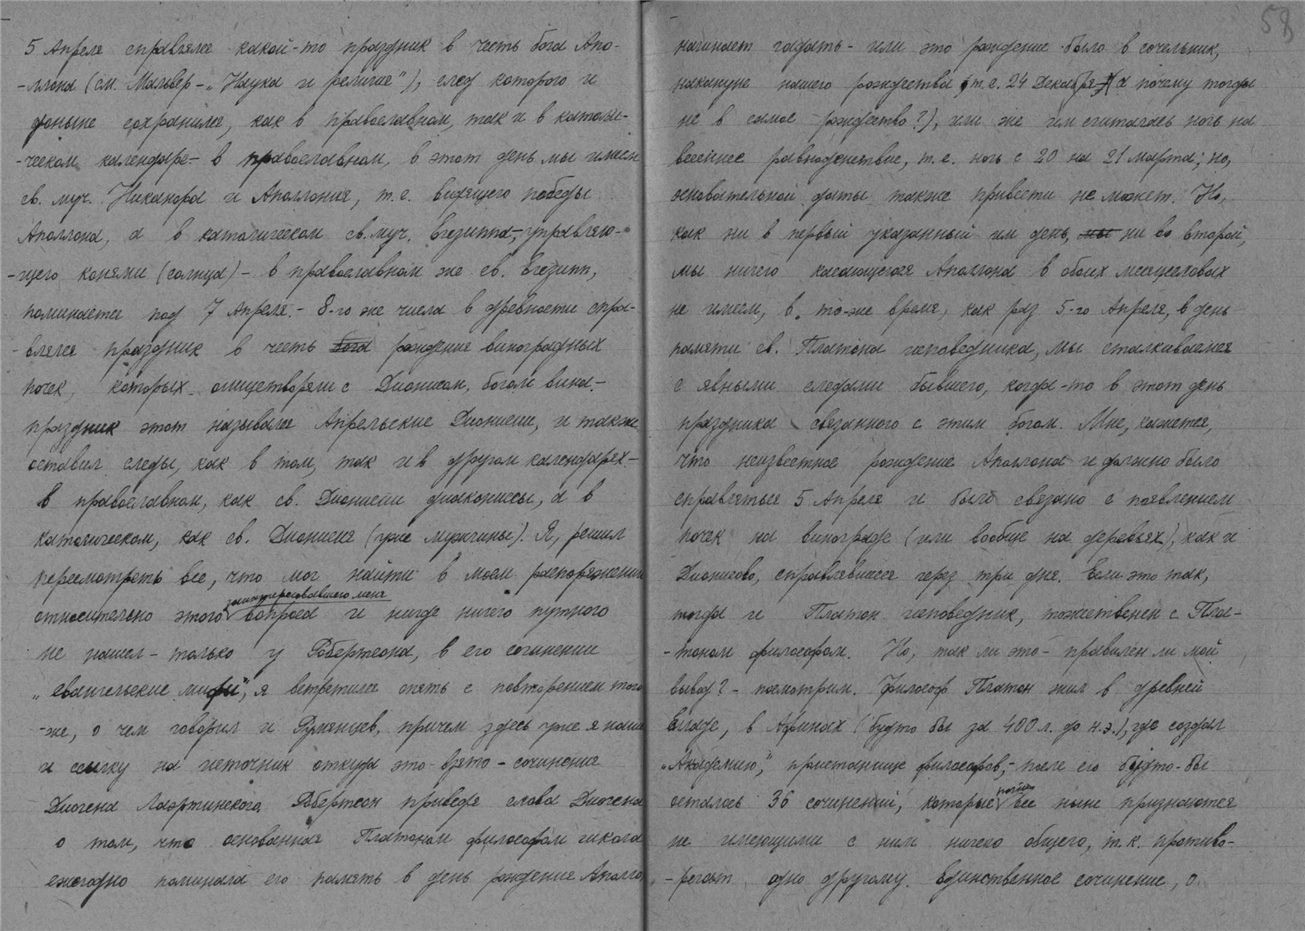 5 Апреля справляли какой-то праздник в честь бога Апо-
-ллона (см. Мальвер - „Наука и религия"), след которого и
доныне сохранился, как в православном, так и в католи-
-ческом календаре - в православном, в этот день мы имеем
св. муч. Никанора и Аполлония, т.е. видящего победы
Аполлона, а в католическом св. муч. Евезиппа, управляю-
-щего конями (солнца) - в православном же св. Евезипп,
поминается под 7 Апреля. - 8-го же числа в древности спра-
-влялся праздник в честь бога рождения виноградных
почек, которых олицетворяли с Дионисом, богом вина. -
праздник этот назывался Апрельские Дионисии, и также
оставил следы, как в том, так и в другом календарях -
в православном, как св. Дионисии диакониссы, а в
католическом, как св. Дионисия (уже мужчины). Я, решил
пересмотреть все, что мог найти в моем распоряжении
относительно этого заинтересовавшего меня вопроса и нигде ничего путного
не нашел - только у Робертсона, в его сочинении
„Евангельские мифы", я встретился опять с повторением того
-же, о чем говорил и Румянцев, причем здесь уже я нашел
и ссылку на источник откуда это взято - сочинения
Диогена Лаэртинского. Робертсон приведя слова Диогена
о том, что основанная Платоном философом школа
ежегодно поминала его память в день рождения Аполло
58
начинает гадать - или это рождение было в сочельник,
накануне нашего рождества, т.е. 24 Декабря (а почему тогда
не в самое рождество?), или же им считалась ночь на
весеннее равноденствие, т.е. ночь с 20 на 21 марта; но,
основательной даты также привести не может. Но,
как ни в первый указанный им день, мы ни во второй,
мы ничего касающегося Аполлона в обоих месяцесловах
не имеем, в то-же время, как раз 5-го Апреля, в день
памяти св. Платона исповедника, мы сталкиваемся
с явными следами бывшего, когда-то в этот день
праздника связанного с этим богом. Мне, кажется,
что неизвестное рождение Аполлона и должно было
справляться 5 Апреля и быть связано с появлением
почек на винограде (или вообще на деревьях), как и
Дионисово, справлявшееся через три дня. Если это так,
тогда и Платон исповедник, тожественен с Пла-
-тоном философом. Но, так ли это - правилен ли мой
вывод? - посмотрим. Философ Платон жил в древней
Элладе, в Афинах (будто бы за 400 л. до н.э.), где создал
„Академию", пристанище философов, - после его будто-бы
осталось 36 сочинений, которые почти все ныне признаются
не имеющими с ним ничего общего, т.к. противо-
-речат одно другому. Единственное сочинение, о